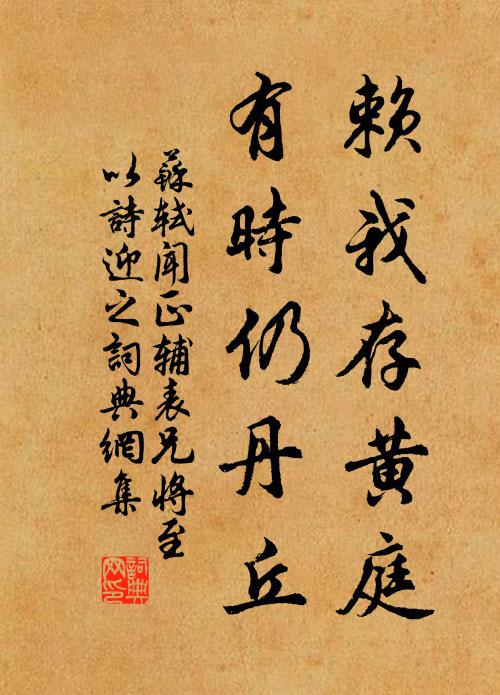 賴我存黄庭
有時仍丹丘
蘇軾聞正輔表兄將至
以詩迎之詞典網集
詞典
网印